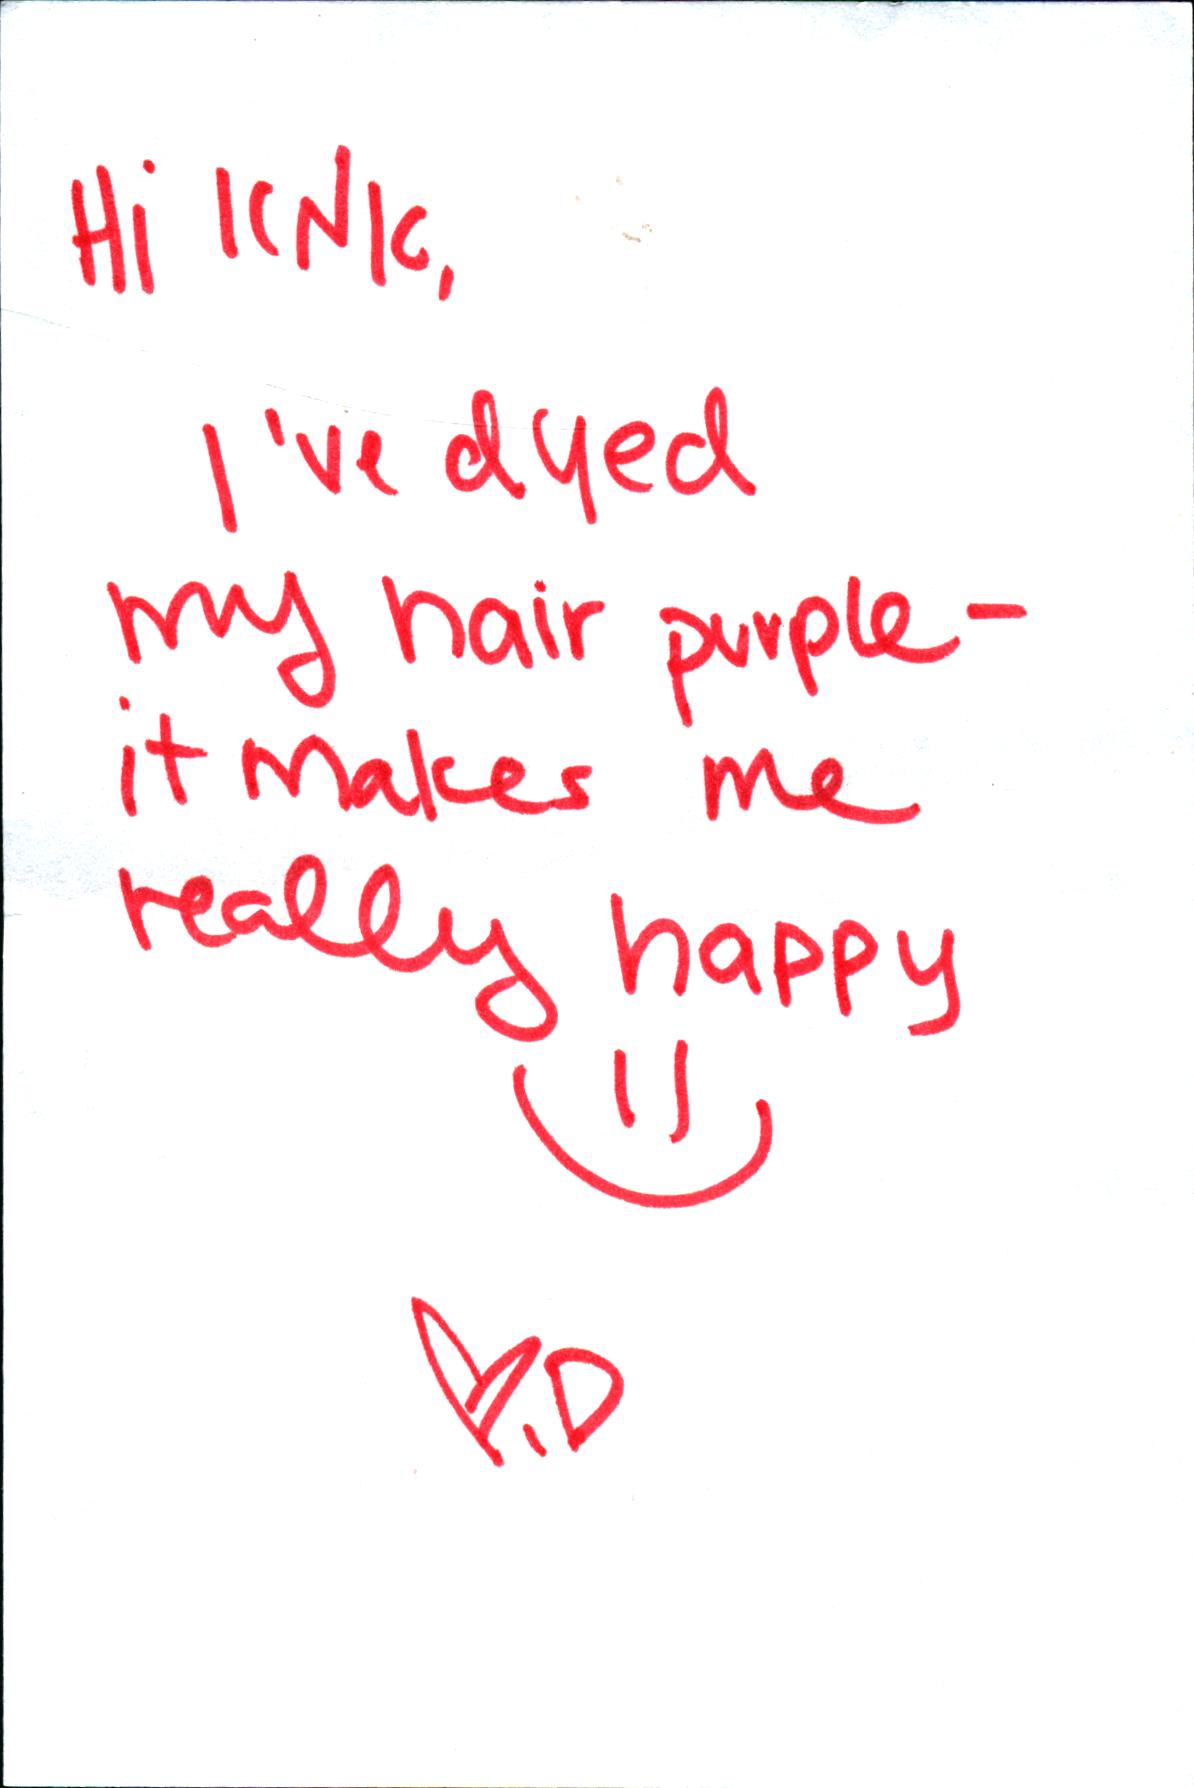 Hi KNK,
I've dyed
my hair purple -
it makes me
really happy
♡, D